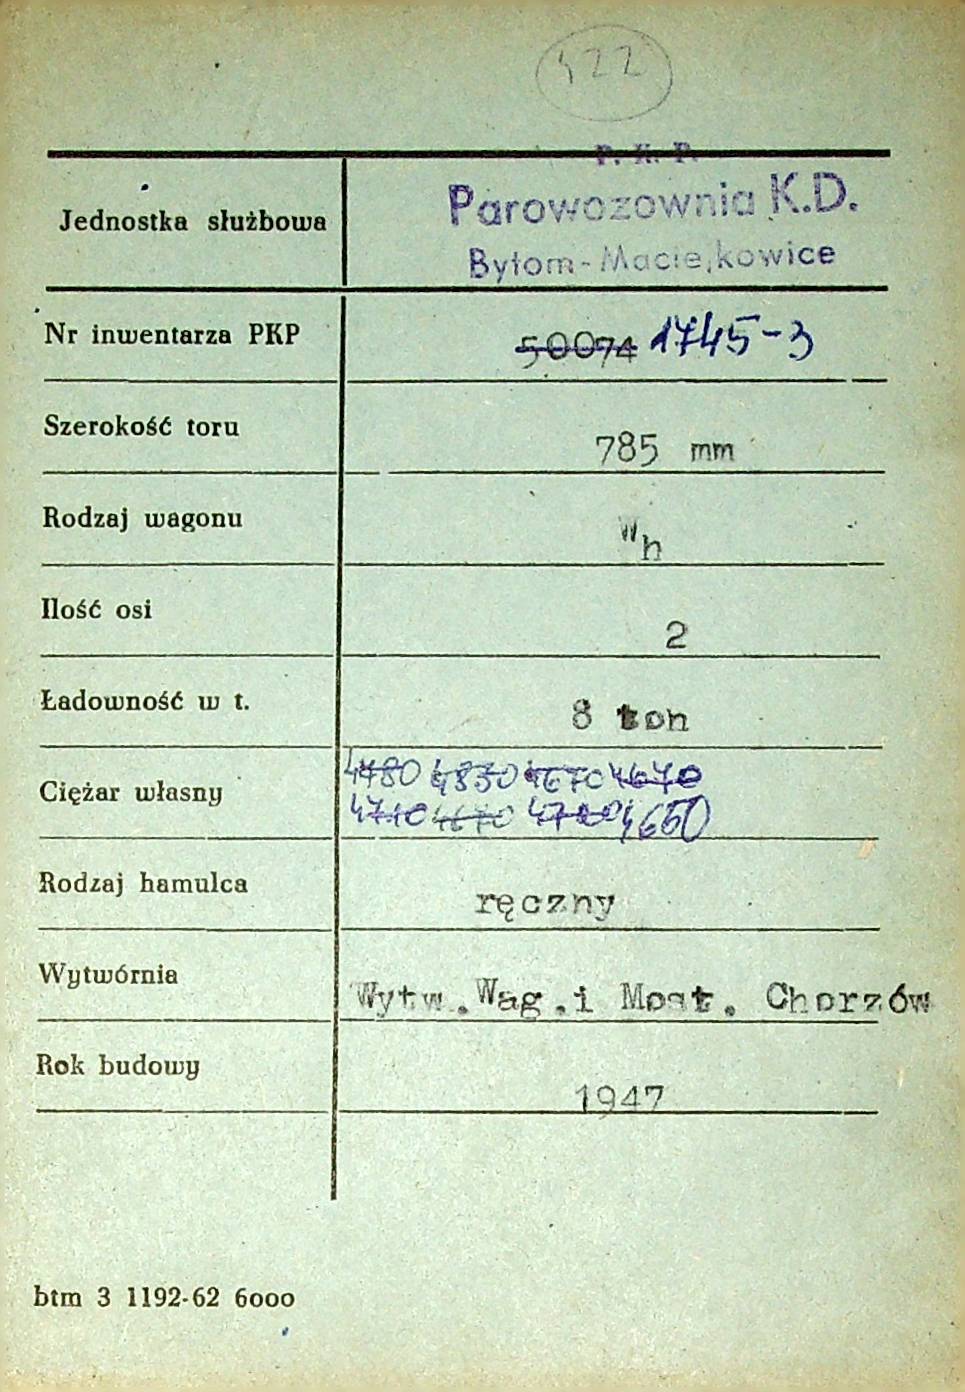 422
P. K. P.
Parowozownia K.D.
Jednostka służbowa
Bytom-Maciejkowice
Nr inwentarza PKP 50074 1745-3
Szerokość toru 785 mm
Rodzaj wagonu Wh
Ilość osi 2
Ładowność w t. 8 ton
4480 4830 4670 4640
Ciężar własny
4710 4670 4700 4650
Rodzaj hamulca ręczny
Wytwórnia Wytw.Wag.i Most. Chorzów
Rok budowy 1947
btm 3 1192-62 6000